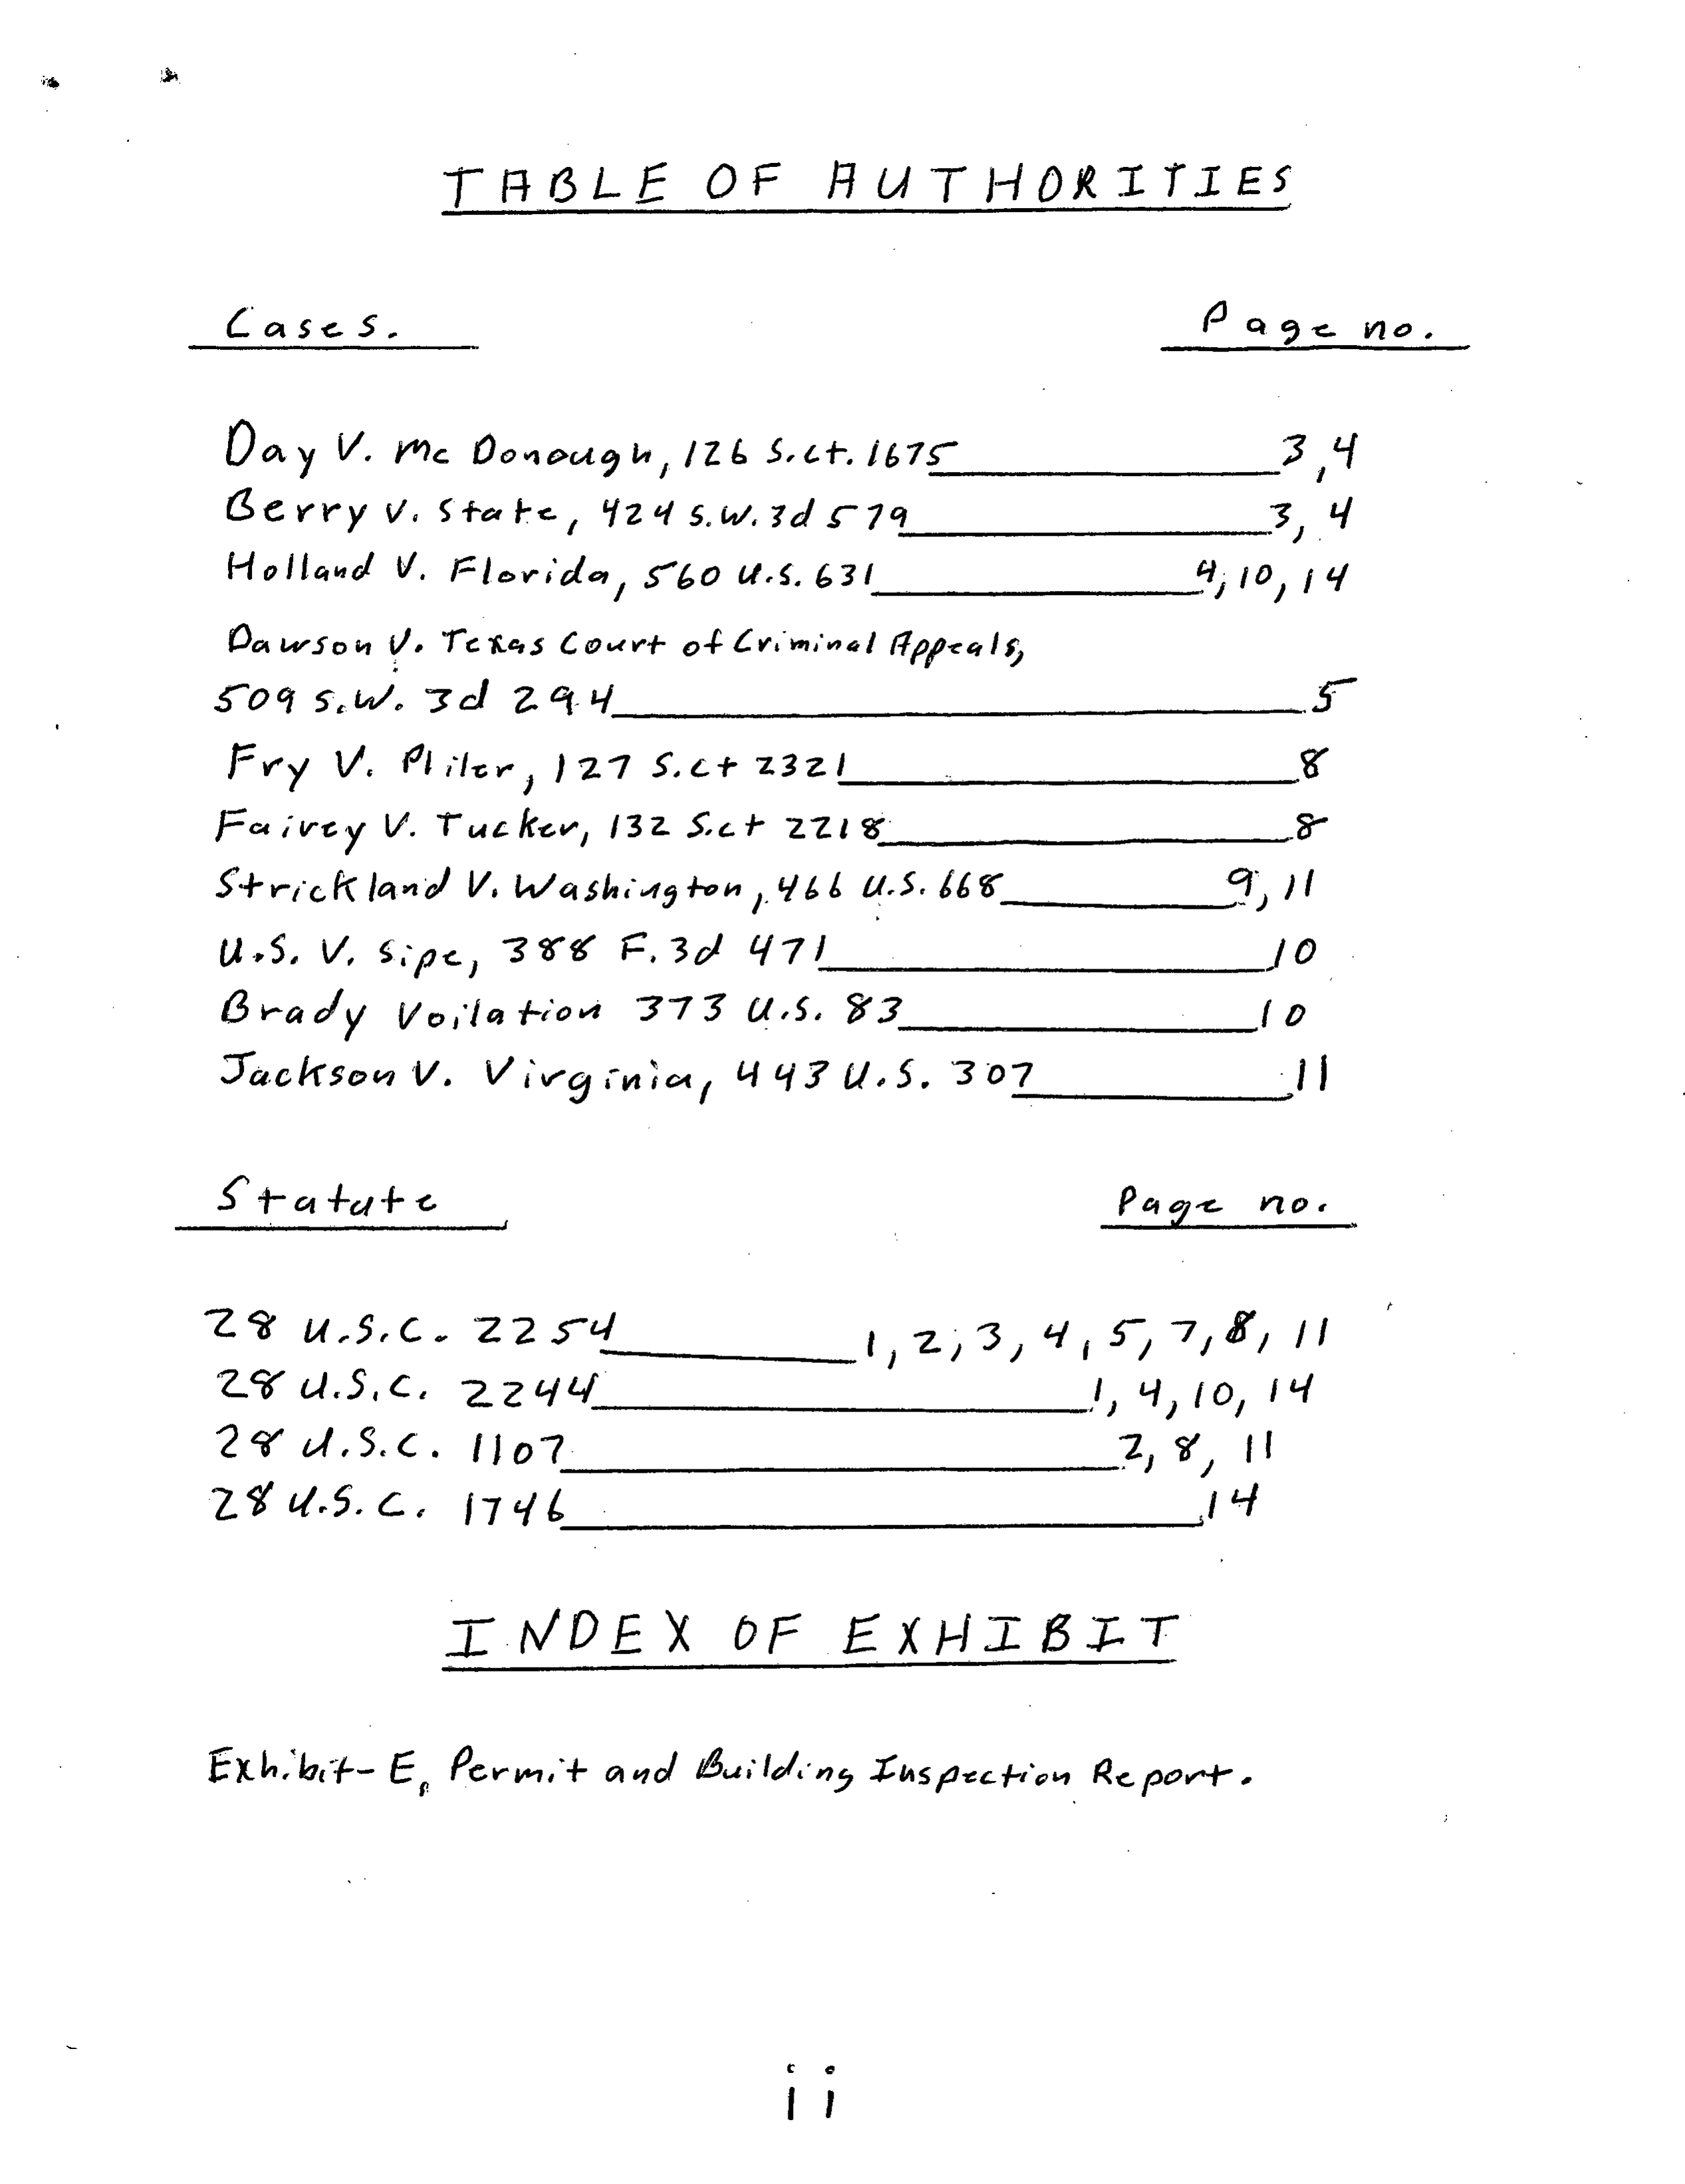 TABLE OF AUTHORITIES
Cases. Page no.
Day V. Mc Donough, 126 S.ct. 1675 3,4
Berry V. State, 424 S.W. 3d 579 3, 4
Holland V. Florida, 560 U.S. 631 4, 10, 14
Dawson V. Texas Court of Criminal Appeals,
509 S.W. 3d 294 5
Fry V. Pliler, 127 S.ct 2321 8
Fairey V. Tucker, 132 S.ct 2218 8
Strickland V. Washington, 466 U.S. 668 9, 11
U.S. V. Sipe, 388 F. 3d 471 10
Brady Voilation 373 U.S. 83 10
Jackson V. Virginia, 443 U.S. 307 11
Statute Page no.
28 U.S.C. 2254 1, 2, 3, 4, 5, 7, 8, 11
28 U.S.C. 2244 1, 4, 10, 14
28 U.S.C. 1107 2, 8, 11
28 U.S.C. 1746 14
INDEX OF EXHIBIT
Exhibit-E, Permit and Building Inspection Report.
ii